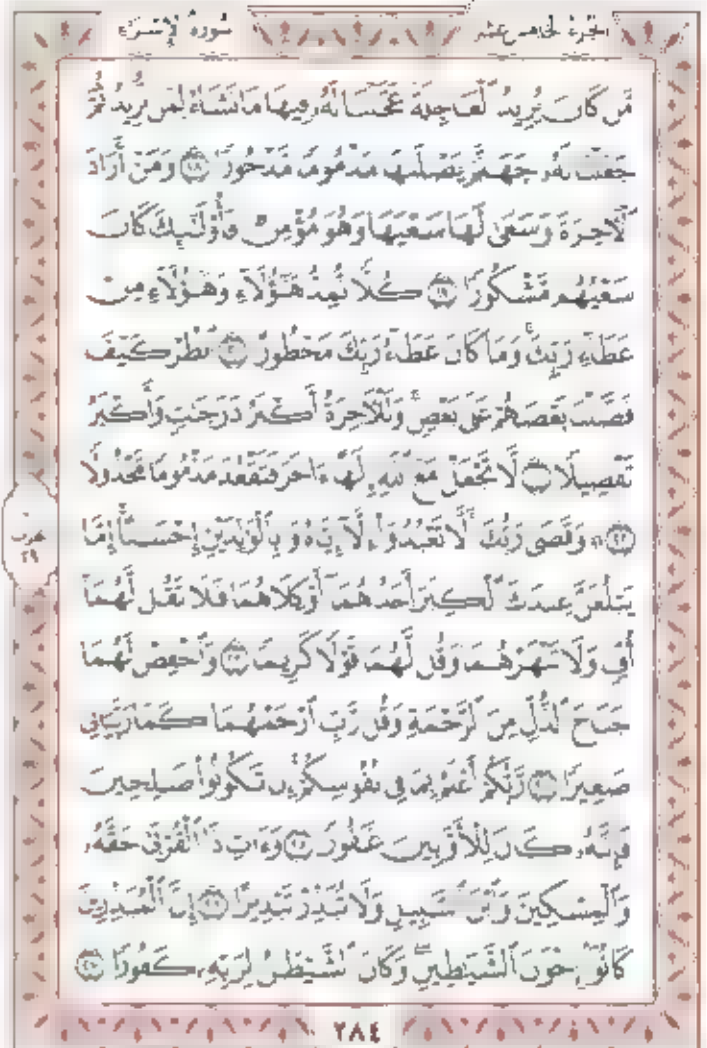 سُورَةُ الإِسْرَاءِ الجُزْءُ الخَامِسَ عَشَر
مَّن كَانَ يُرِيدُ ٱلْعَاجِلَةَ عَجَّلْنَا لَهُۥ فِيهَا مَا نَشَآءُ لِمَن نُّرِيدُ ثُمَّ
جَعَلْنَا لَهُۥ جَهَنَّمَ يَصْلَىٰهَا مَذْمُومًا مَّدْحُورًا ١٨ وَمَنْ أَرَادَ
ٱلْـَٔاخِرَةَ وَسَعَىٰ لَهَا سَعْيَهَا وَهُوَ مُؤْمِنٌ فَأُو۟لَٰٓئِكَ كَانَ
سَعْيُهُم مَّشْكُورًا ١٩ كُلًّا نُّمِدُّ هَٰٓؤُلَآءِ وَهَٰٓؤُلَآءِ مِنْ
عَطَآءِ رَبِّكَ ۚ وَمَا كَانَ عَطَآءُ رَبِّكَ مَحْظُورًا ٢٠ ٱنظُرْ كَيْفَ
فَضَّلْنَا بَعْضَهُمْ عَلَىٰ بَعْضٍ ۚ وَلَلْـَٔاخِرَةُ أَكْبَرُ دَرَجَٰتٍ وَأَكْبَرُ
تَفْضِيلًا ٢١ لَّا تَجْعَلْ مَعَ ٱللَّهِ إِلَٰهًا ءَاخَرَ فَتَقْعُدَ مَذْمُومًا مَّخْذُولًا
٢٢ ۞ وَقَضَىٰ رَبُّكَ أَلَّا تَعْبُدُوٓا۟ إِلَّآ إِيَّاهُ وَبِٱلْوَٰلِدَيْنِ إِحْسَٰنًا ۚ إِمَّا
حزب ٢٩
يَبْلُغَنَّ عِندَكَ ٱلْكِبَرَ أَحَدُهُمَآ أَوْ كِلَاهُمَا فَلَا تَقُل لَّهُمَآ
أُفٍّ وَلَا تَنْهَرْهُمَا وَقُل لَّهُمَا قَوْلًا كَرِيمًا ٢٣ وَٱخْفِضْ لَهُمَا
جَنَاحَ ٱلذُّلِّ مِنَ ٱلرَّحْمَةِ وَقُل رَّبِّ ٱرْحَمْهُمَا كَمَا رَبَّيَانِى
صَغِيرًا ٢٤ رَّبُّكُمْ أَعْلَمُ بِمَا فِى نُفُوسِكُمْ ۚ إِن تَكُونُوا۟ صَٰلِحِينَ
فَإِنَّهُۥ كَانَ لِلْأَوَّٰبِينَ غَفُورًا ٢٥ وَءَاتِ ذَا ٱلْقُرْبَىٰ حَقَّهُۥ
وَٱلْمِسْكِينَ وَٱبْنَ ٱلسَّبِيلِ وَلَا تُبَذِّرْ تَبْذِيرًا ٢٦ إِنَّ ٱلْمُبَذِّرِينَ
كَانُوٓا۟ إِخْوَٰنَ ٱلشَّيَٰطِينِ ۖ وَكَانَ ٱلشَّيْطَٰنُ لِرَبِّهِۦ كَفُورًا ٢٧
٢٨٤